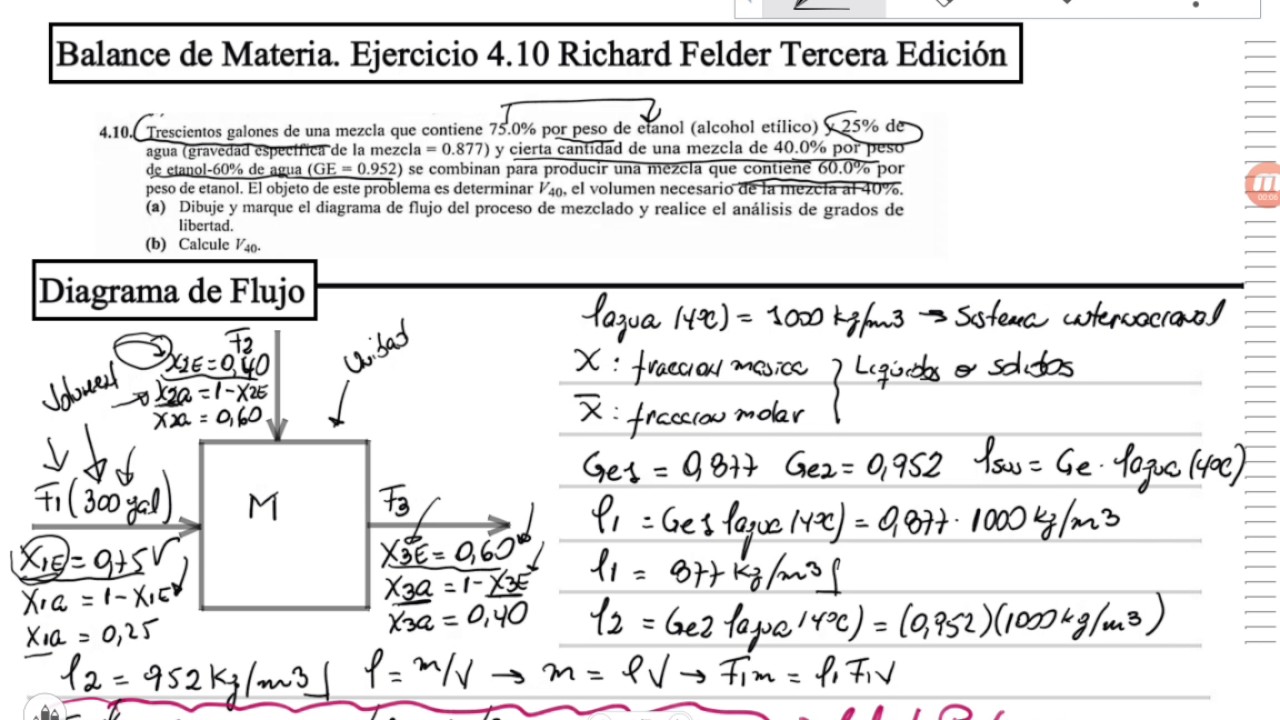 Balance de Materia. Ejercicio 4.10 Richard Felder Tercera Edición
4.10. Trescientos galones de una mezcla que contiene 75.0% por peso de etanol (alcohol etílico) y 25% de
agua (gravedad específica de la mezcla = 0.877) y cierta cantidad de una mezcla de 40.0% por peso
de etanol-60% de agua (GE = 0.952) se combinan para producir una mezcla que contiene 60.0% por
peso de etanol. El objeto de este problema es determinar V40, el volumen necesario de la mezcla al 40%.
(a) Dibuje y marque el diagrama de flujo del proceso de mezclado y realice el análisis de grados de
libertad.
(b) Calcule V40.
Diagrama de Flujo
F2
X2E = 0,40
X2a = 1-X2E
X2a = 0,60
Volumen
Unidad
F1 (300 gal)
M
F3
X1E = 0,75
X1a = 1-X1E
X1a = 0,25
X3E = 0,60
X3a = 1-X3E
X3a = 0,40
ρagua (4°C) = 1000 kg/m3 → Sistema internacional
X : fraccion masica } Liquidos o solidos
X̄ : fraccion molar
Ge1 = 0,877 Ge2 = 0,952 ρsus = Ge · ρagua (4°C)
ρ1 = Ge1 ρagua (4°C) = 0,877 · 1000 kg/m3
ρ1 = 877 kg/m3
ρ2 = Ge2 ρagua (4°C) = (0,952)(1000 kg/m3)
ρ2 = 952 kg/m3 ρ = m/V → m = ρV → F1m = ρ1 F1V